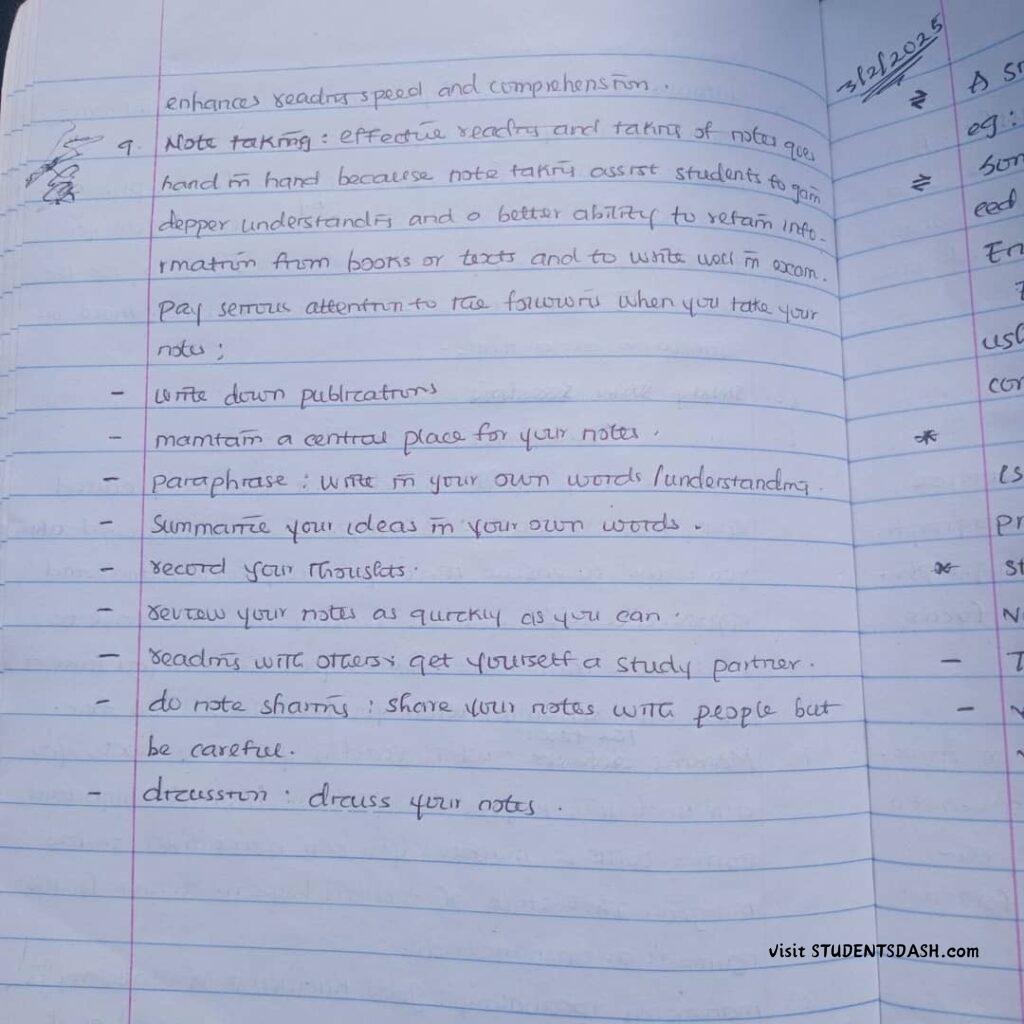 enhances reading speed and comprehension.
9. Note taking: effective reading and taking of notes goes
hand in hand because note taking assist students to gain
depper understanding and a better ability to retain info-
rmation from books or texts and to write well in exam.
Pay serious attention to the following when you take your
notes;
- write down publications
- maintain a central place for your notes.
- paraphrase: write in your own words/understanding.
- Summarize your ideas in your own words.
- record your thoughts.
- review your notes as quickly as you can.
- reading with others; get yourself a study partner.
- do note sharing: share your notes with people but
be careful.
- discussion: discuss your notes.
3/2/2025
A
eg:
eed
*
*
-
-
visit STUDENTSDASH.com